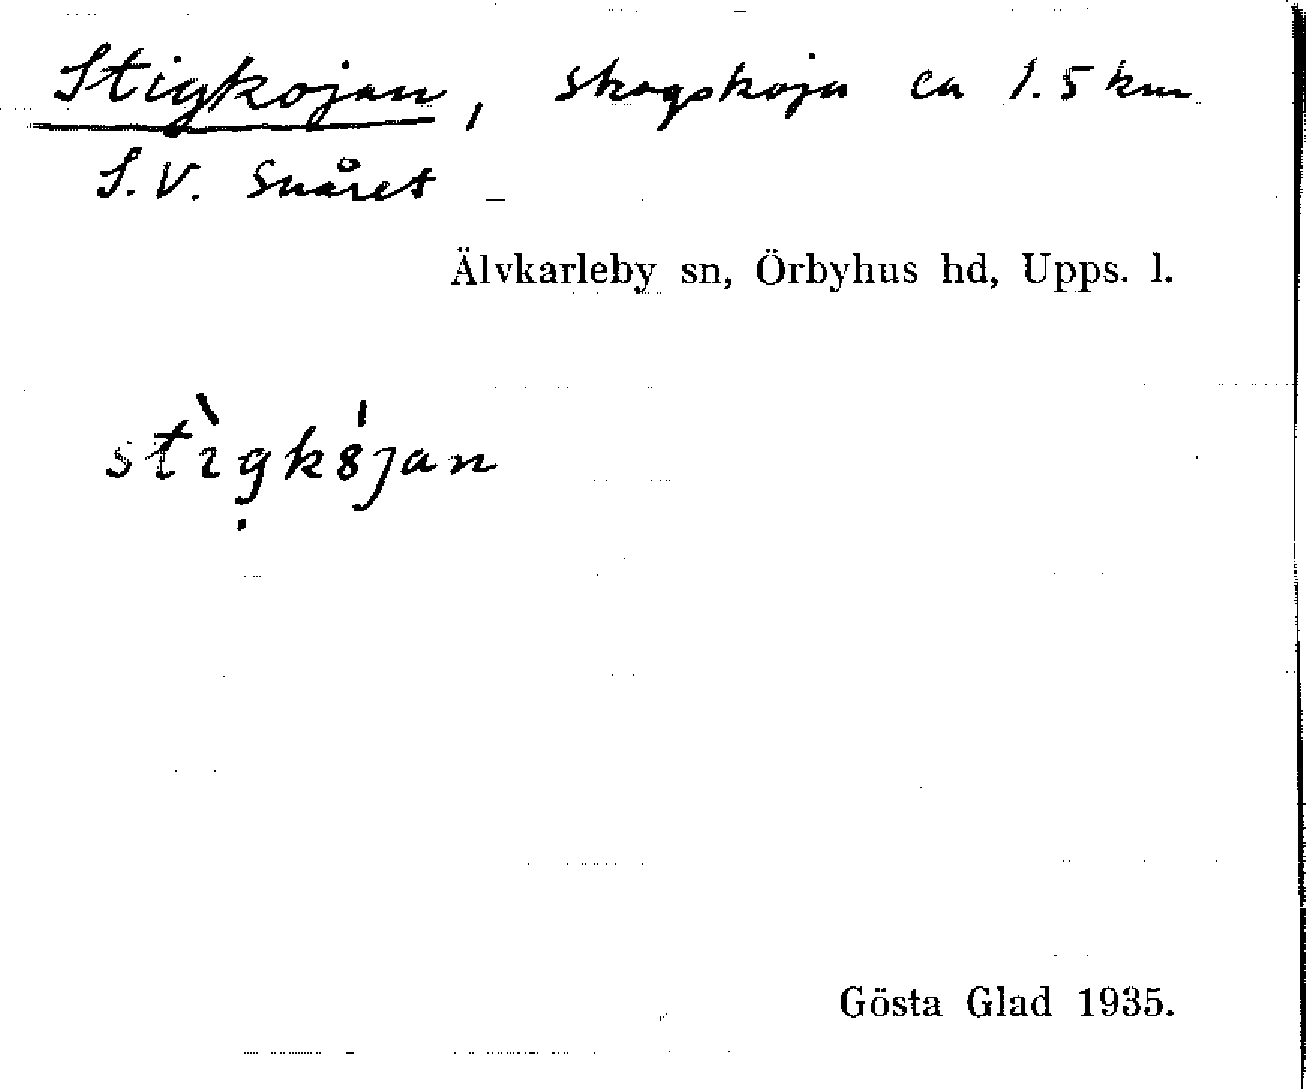 Stigkojan, skogskoja ca 1.5 km
S.V. Snåret
Älvkarleby sn, Örbyhus hd, Upps. l.
stìgk8́jan
Gösta Glad 1935.